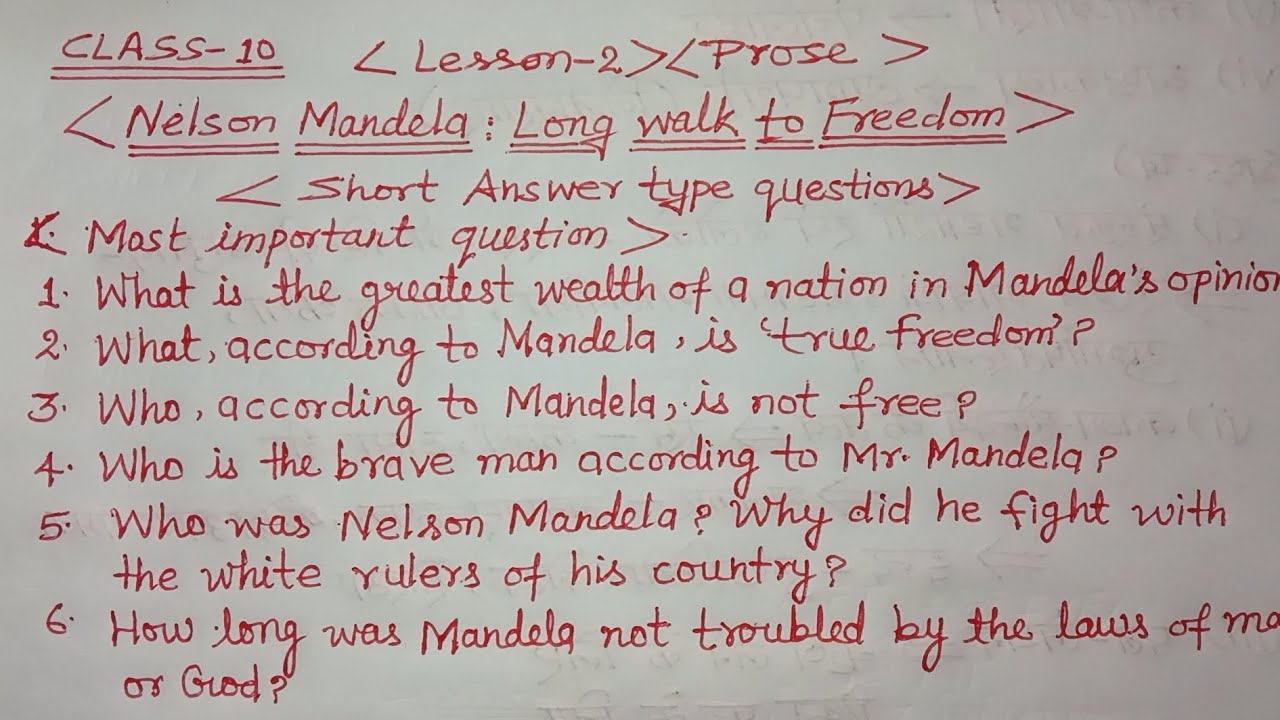 CLASS-10 <Lesson-2><Prose>
<Nelson Mandela: Long walk to Freedom>
<Short Answer type questions>
< Most important question>.
1. What is the greatest wealth of a nation in Mandela's opinion
2. What, according to Mandela, is 'true freedom'?
3. Who, according to Mandela, is not free?
4. Who is the brave man according to Mr. Mandela?
5. Who was Nelson Mandela? Why did he fight with
the white rulers of his country?
6. How long was Mandela not troubled by the laws of ma
or God?